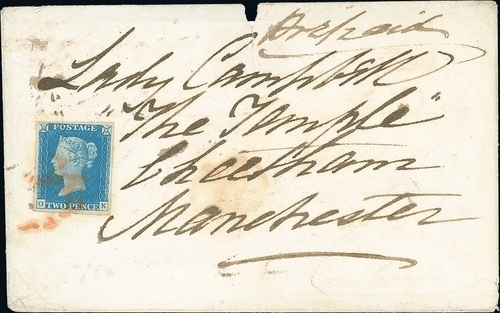 Prepaid
Lady Campbell
"The Temple"
Cheetham
Manchester
POSTAGE
TWO PENCE